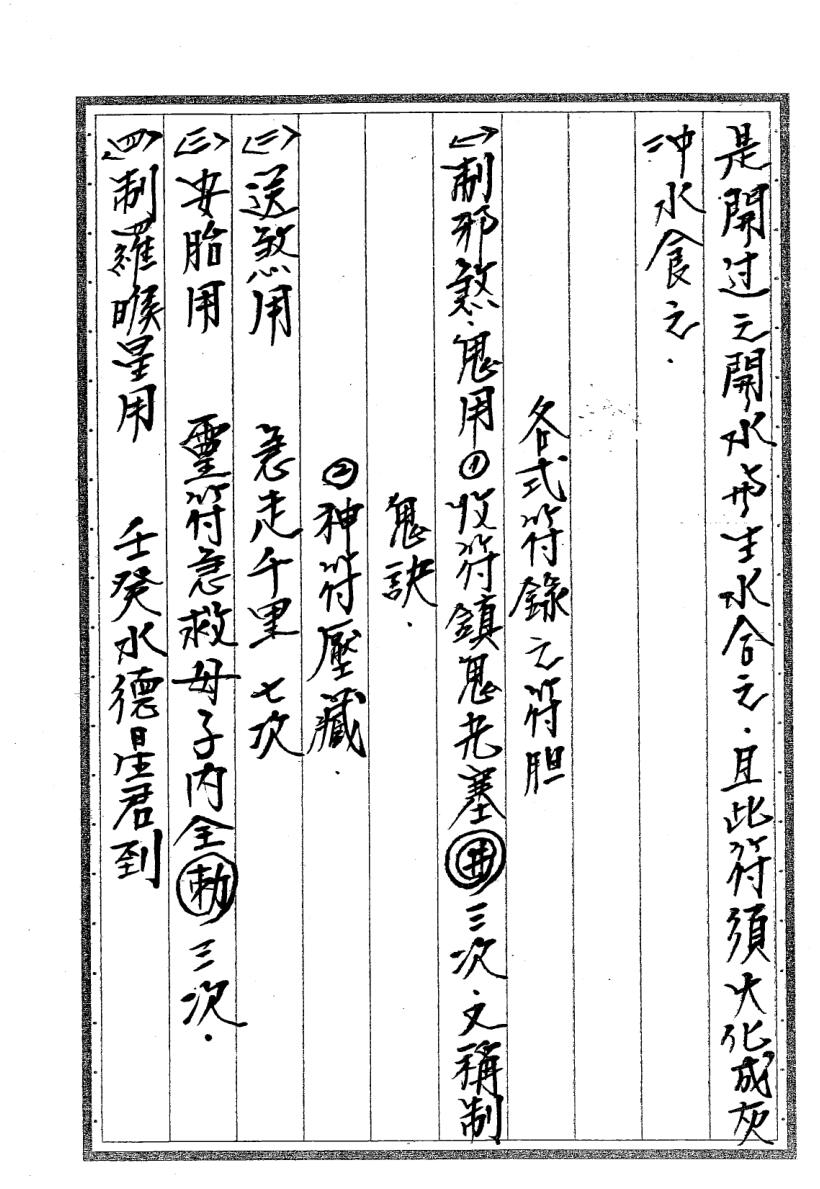 是開过之開水與生水合之．且此符須火化成灰
冲水食之．
各式符錄之符胆
㈠制邪煞．鬼用①收符鎮鬼 塞井三次．又稱制
鬼訣．
②神符壓藏．
㈡送煞用 急走千里 七次
㈢安胎用 靈符急救母子内全勅三次．
㈣制羅睺星用 壬癸水德星君到